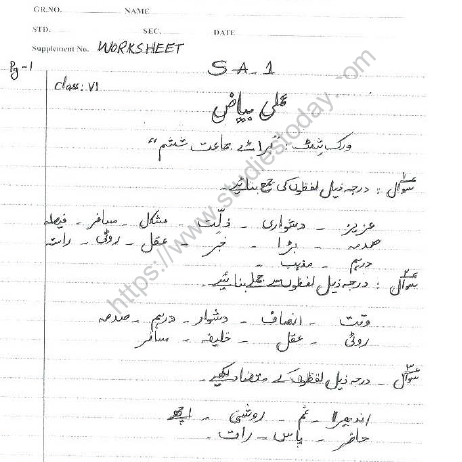 GR.NO. NAME
STD. SEC. DATE
Supplement No. WORKSHEET
Pg-1
SA-1
Class: VI
عملی بیاض
ورک شیٹ: "برائے جماعت ششم"
سوال ۱: درجہ ذیل لفظوں کی جمع بنائیے۔
عزیز - دشواری - ذلّت - مشکل - مسافر - فیصلہ
صدمہ - بڑا - خبر - عقل - روٹی - راستہ
درہم - مذہب -
سوال ۲: درجہ ذیل لفظوں سے جملے بنائیے۔
وقت - انصاف - دشوار - درہم - صدمہ
روٹی - عقل - خلیفہ - مسافر
سوال ۳ - درجہ ذیل لفظوں کے متضاد لکھیے۔
اندھیرا - غم - روشنی - اچھے
حاضر - پاس - رات -
https://www.studiestoday.com